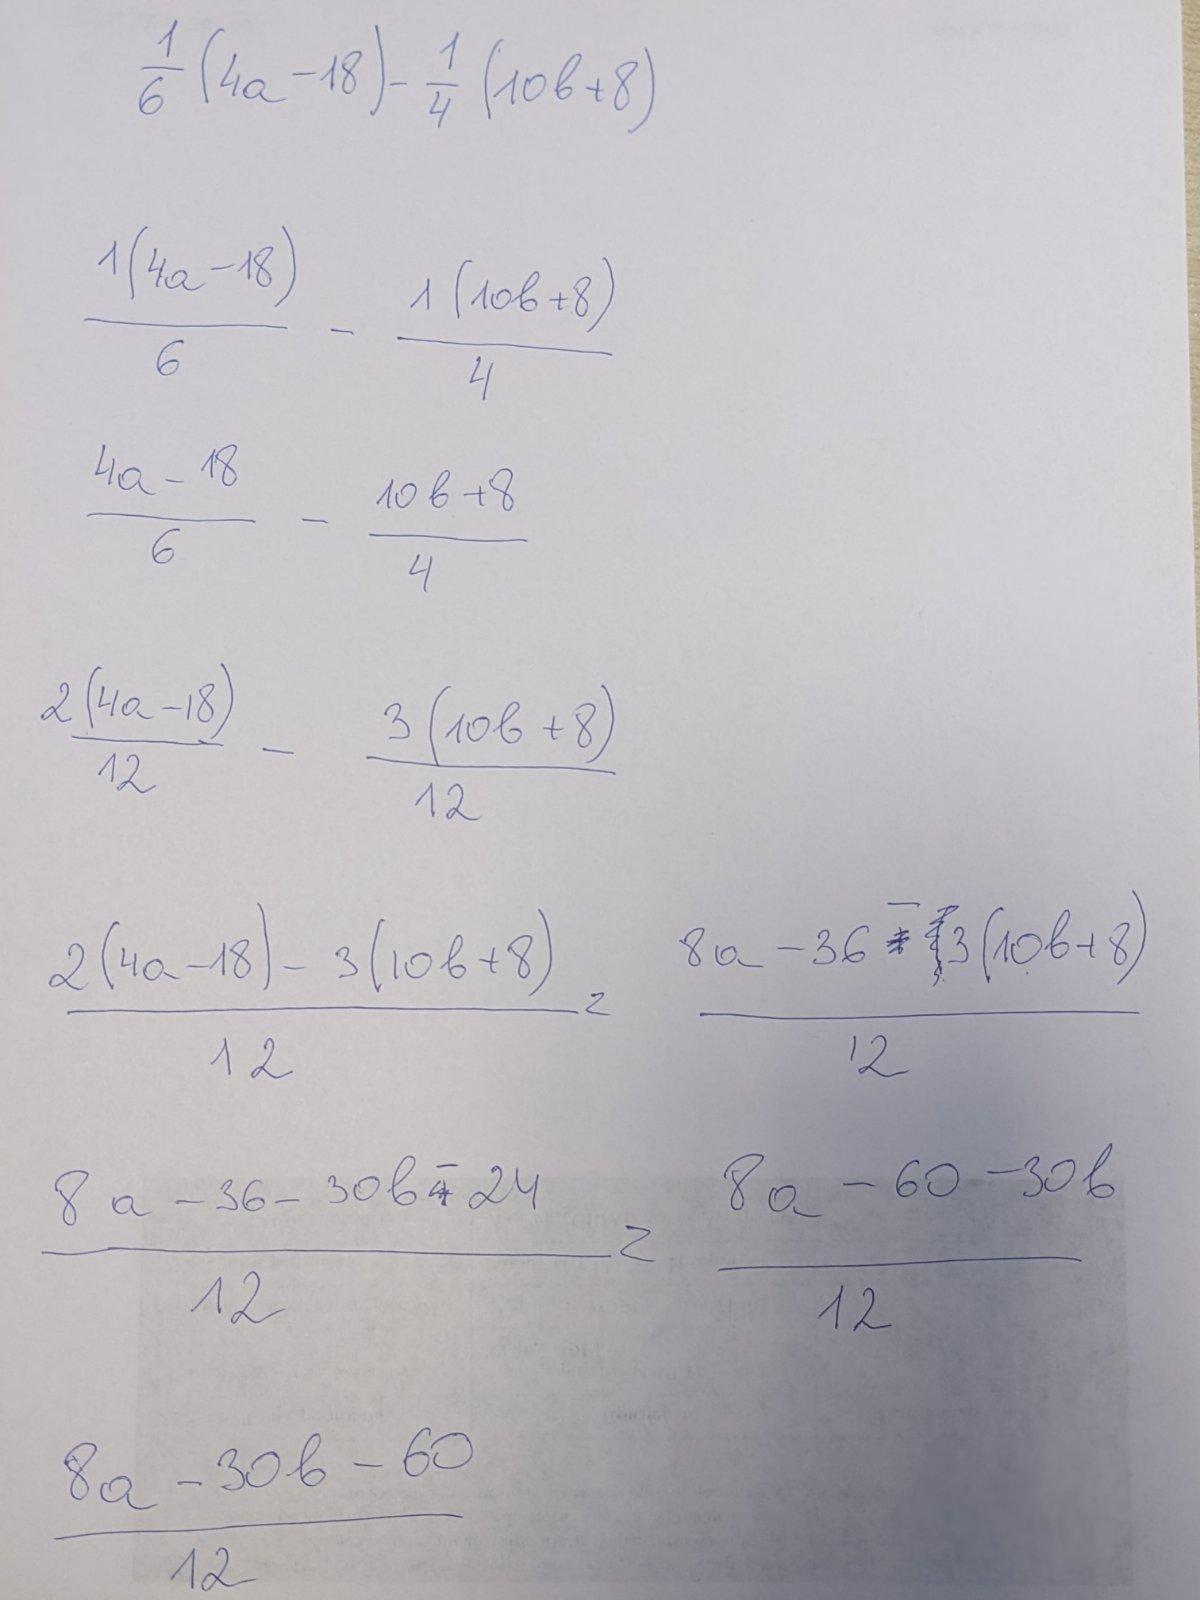 1/6 (4a - 18) - 1/4 (10b + 8)
1(4a - 18)/6 - 1(10b + 8)/4
4a - 18/6 - 10b + 8/4
2(4a - 18)/12 - 3(10b + 8)/12
2(4a - 18) - 3(10b + 8)/12 = 8a - 36 - 3(10b + 8)/12
8a - 36 - 30b - 24/12 = 8a - 60 - 30b/12
8a - 30b - 60/12